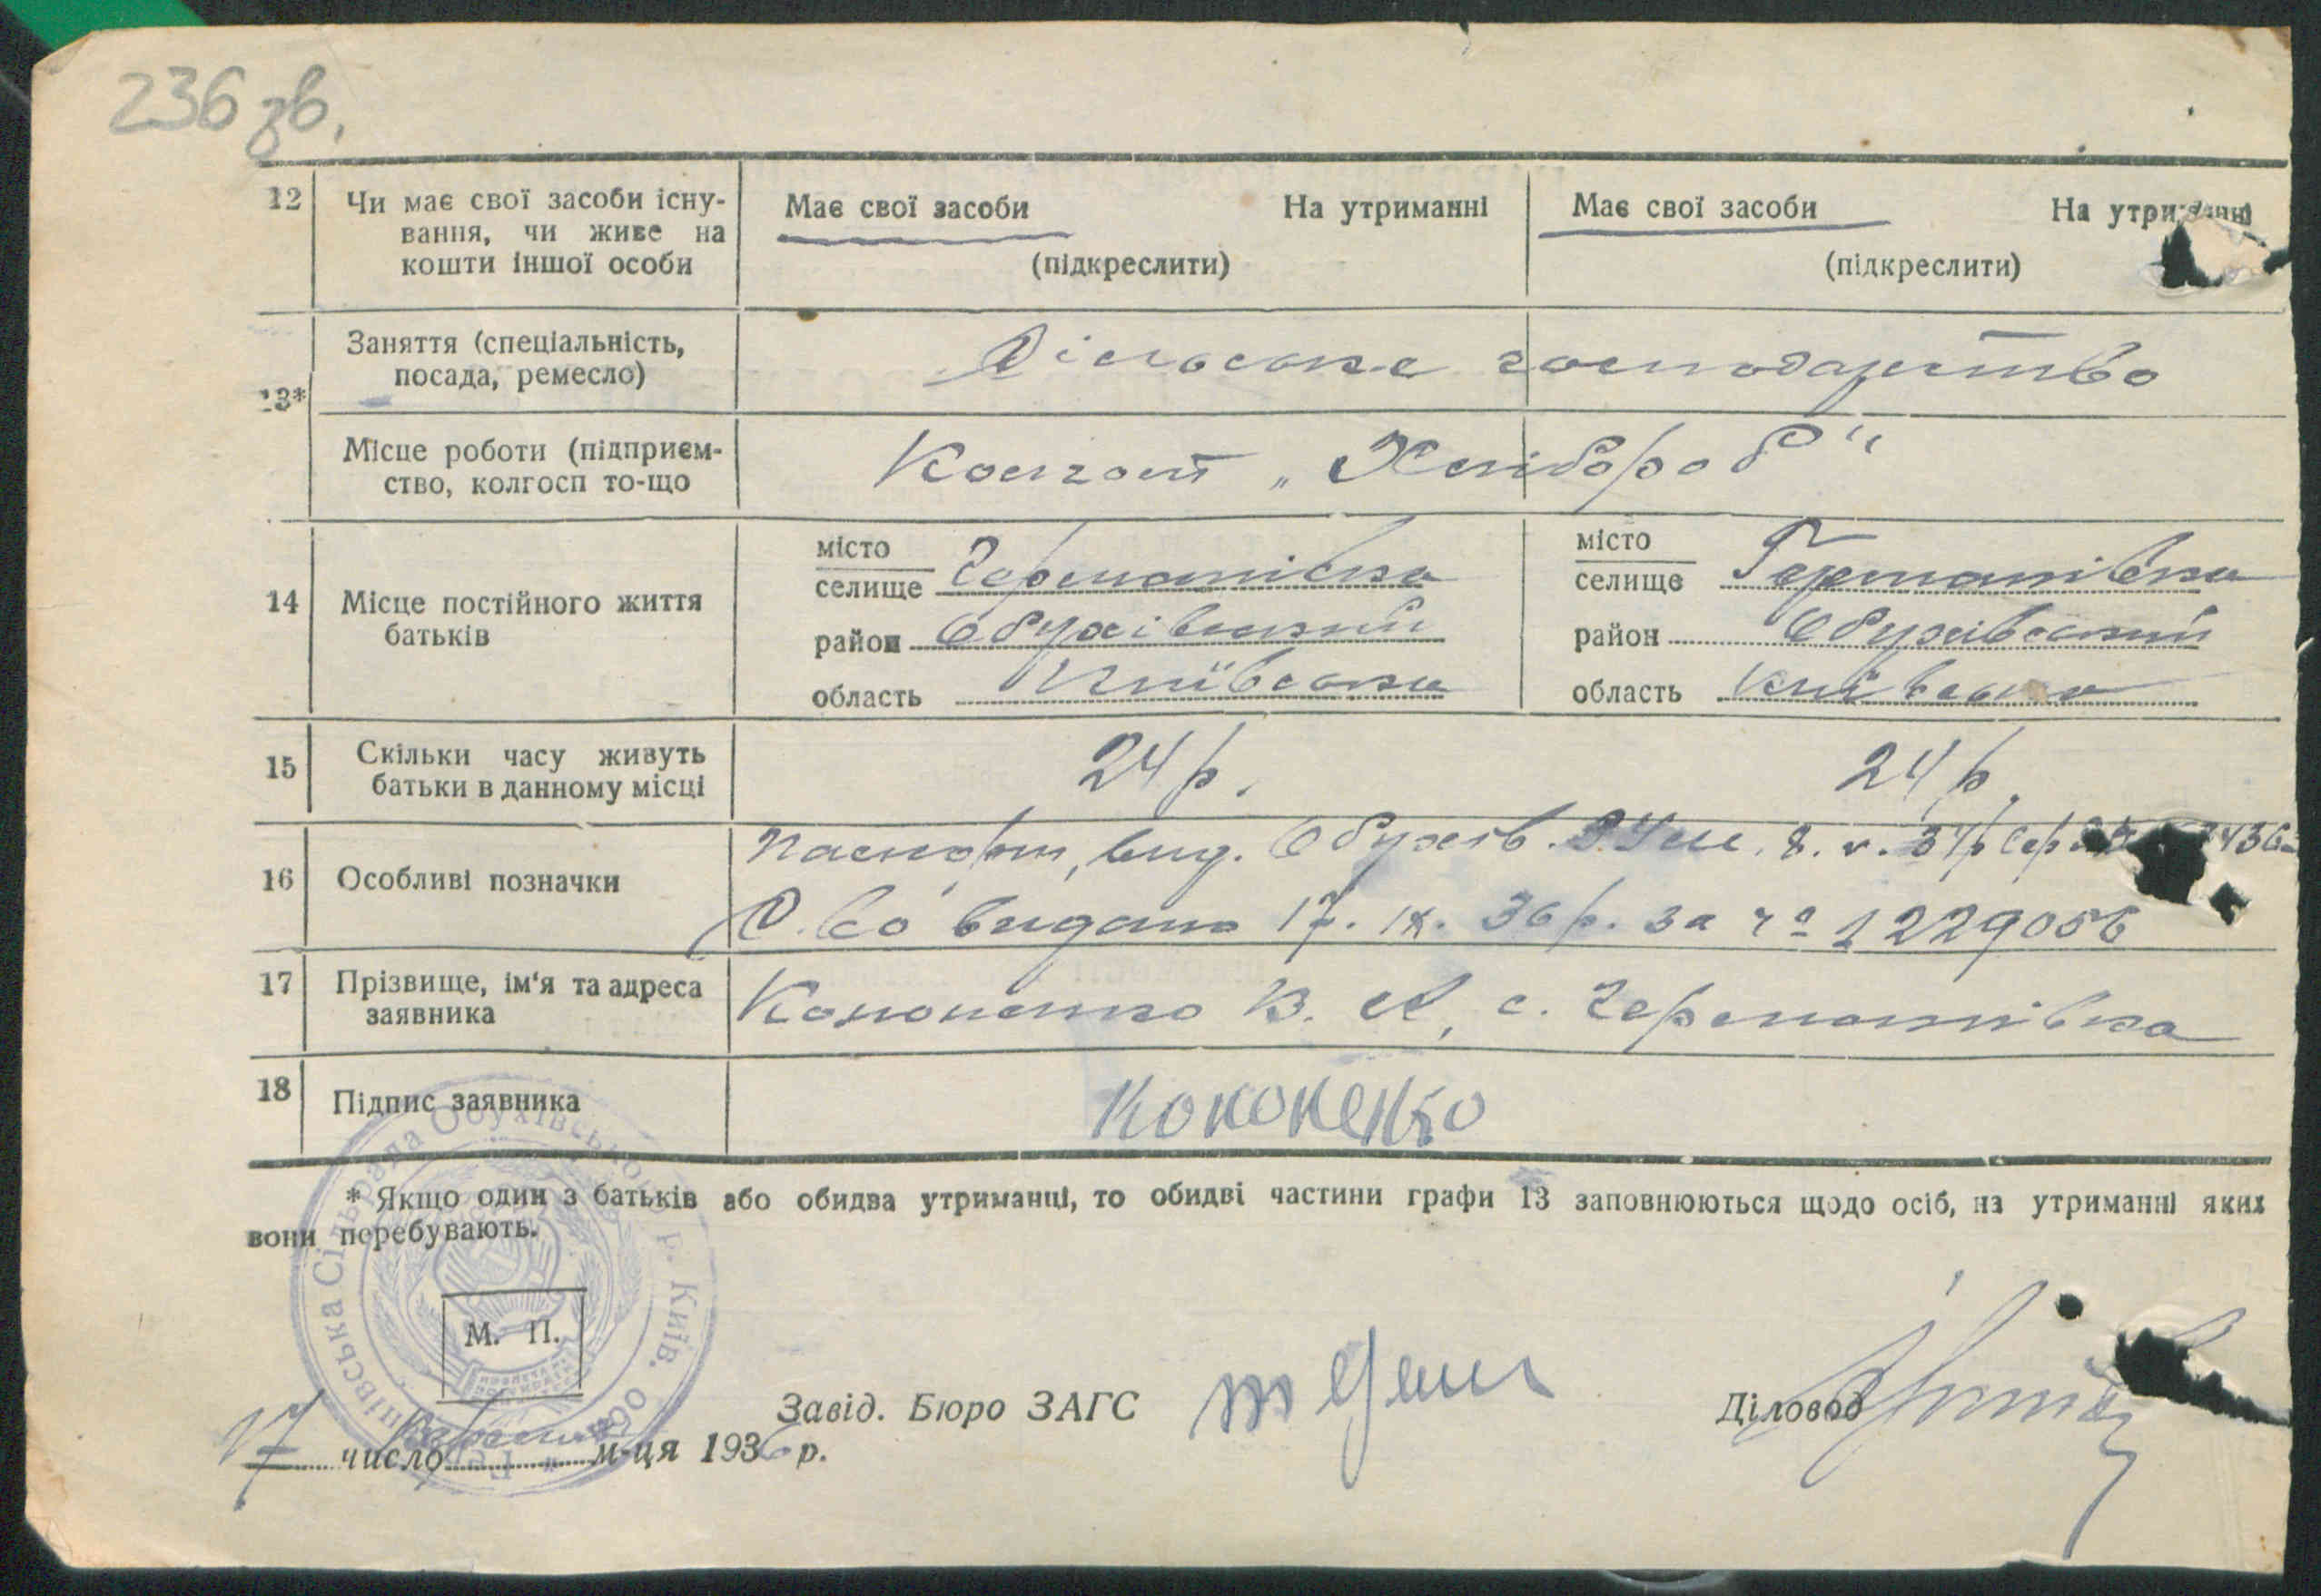 236 зв.
12 Чи має свої засоби існу- Має свої засоби На утриманні Має свої засоби На утриманні
вання, чи живе на
кошти іншої особи (підкреслити) (підкреслити)
Заняття (спеціальність,
посада, ремесло) Сільське господарство
13*
Місце роботи (підприєм- Колгосп „Хлібороб"
ство, колгосп то-що
місто місто
селище Германівка селище Германівка
14 Місце постійного життя
батьків район Обухівський район Обухівський
область Київська область Київська
15 Скільки часу живуть 24 р. 24 р.
батьки в данному місці
Паспорт, вид. Обухів. 8. V. 37р Сер
16 Особливі позначки
С. во видано 17. IX. 36 р. за № 1229056
17 Прізвище, ім'я та адреса Кононенко В. с. Германівка
заявника
18 Підпис заявника Кононенко
* Якщо один з батьків або обидва утриманці, то обидві частини графи 13 заповнюються щодо осіб, на утриманні яких
вони перебувають.
Германівська Сільрада Обухівського р. Київ. Обл.
М. П.
Завід. Бюро ЗАГС Діловод
17 число м-ця 1936 р.